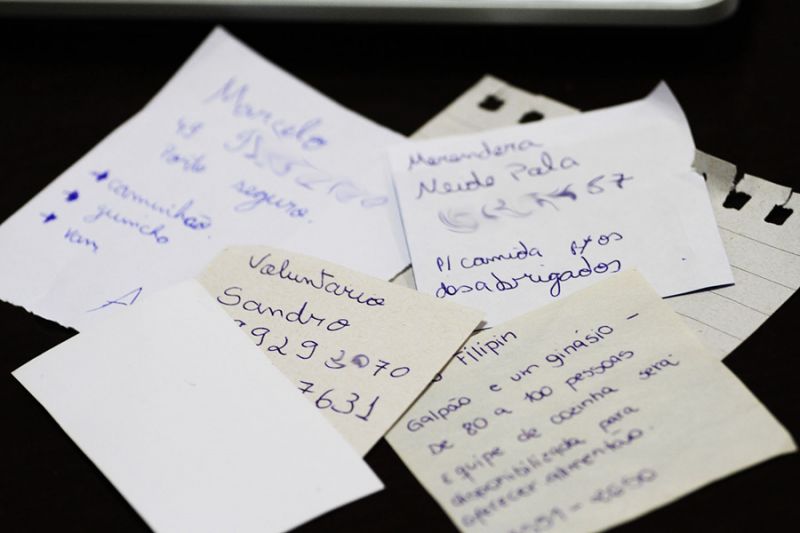 Marcelo
49
Porto seguro.
caminhão.
guincho
van
Merendera
Neide Pala
57
P/ comida p/ os
desabrigados
Voluntario
Sandro
9293
7631
Filipin
Galpão e um ginásio -
De 80 a 100 pessoas
Equipe de cozinha será
disponibilizada para
oferecer alimentão.